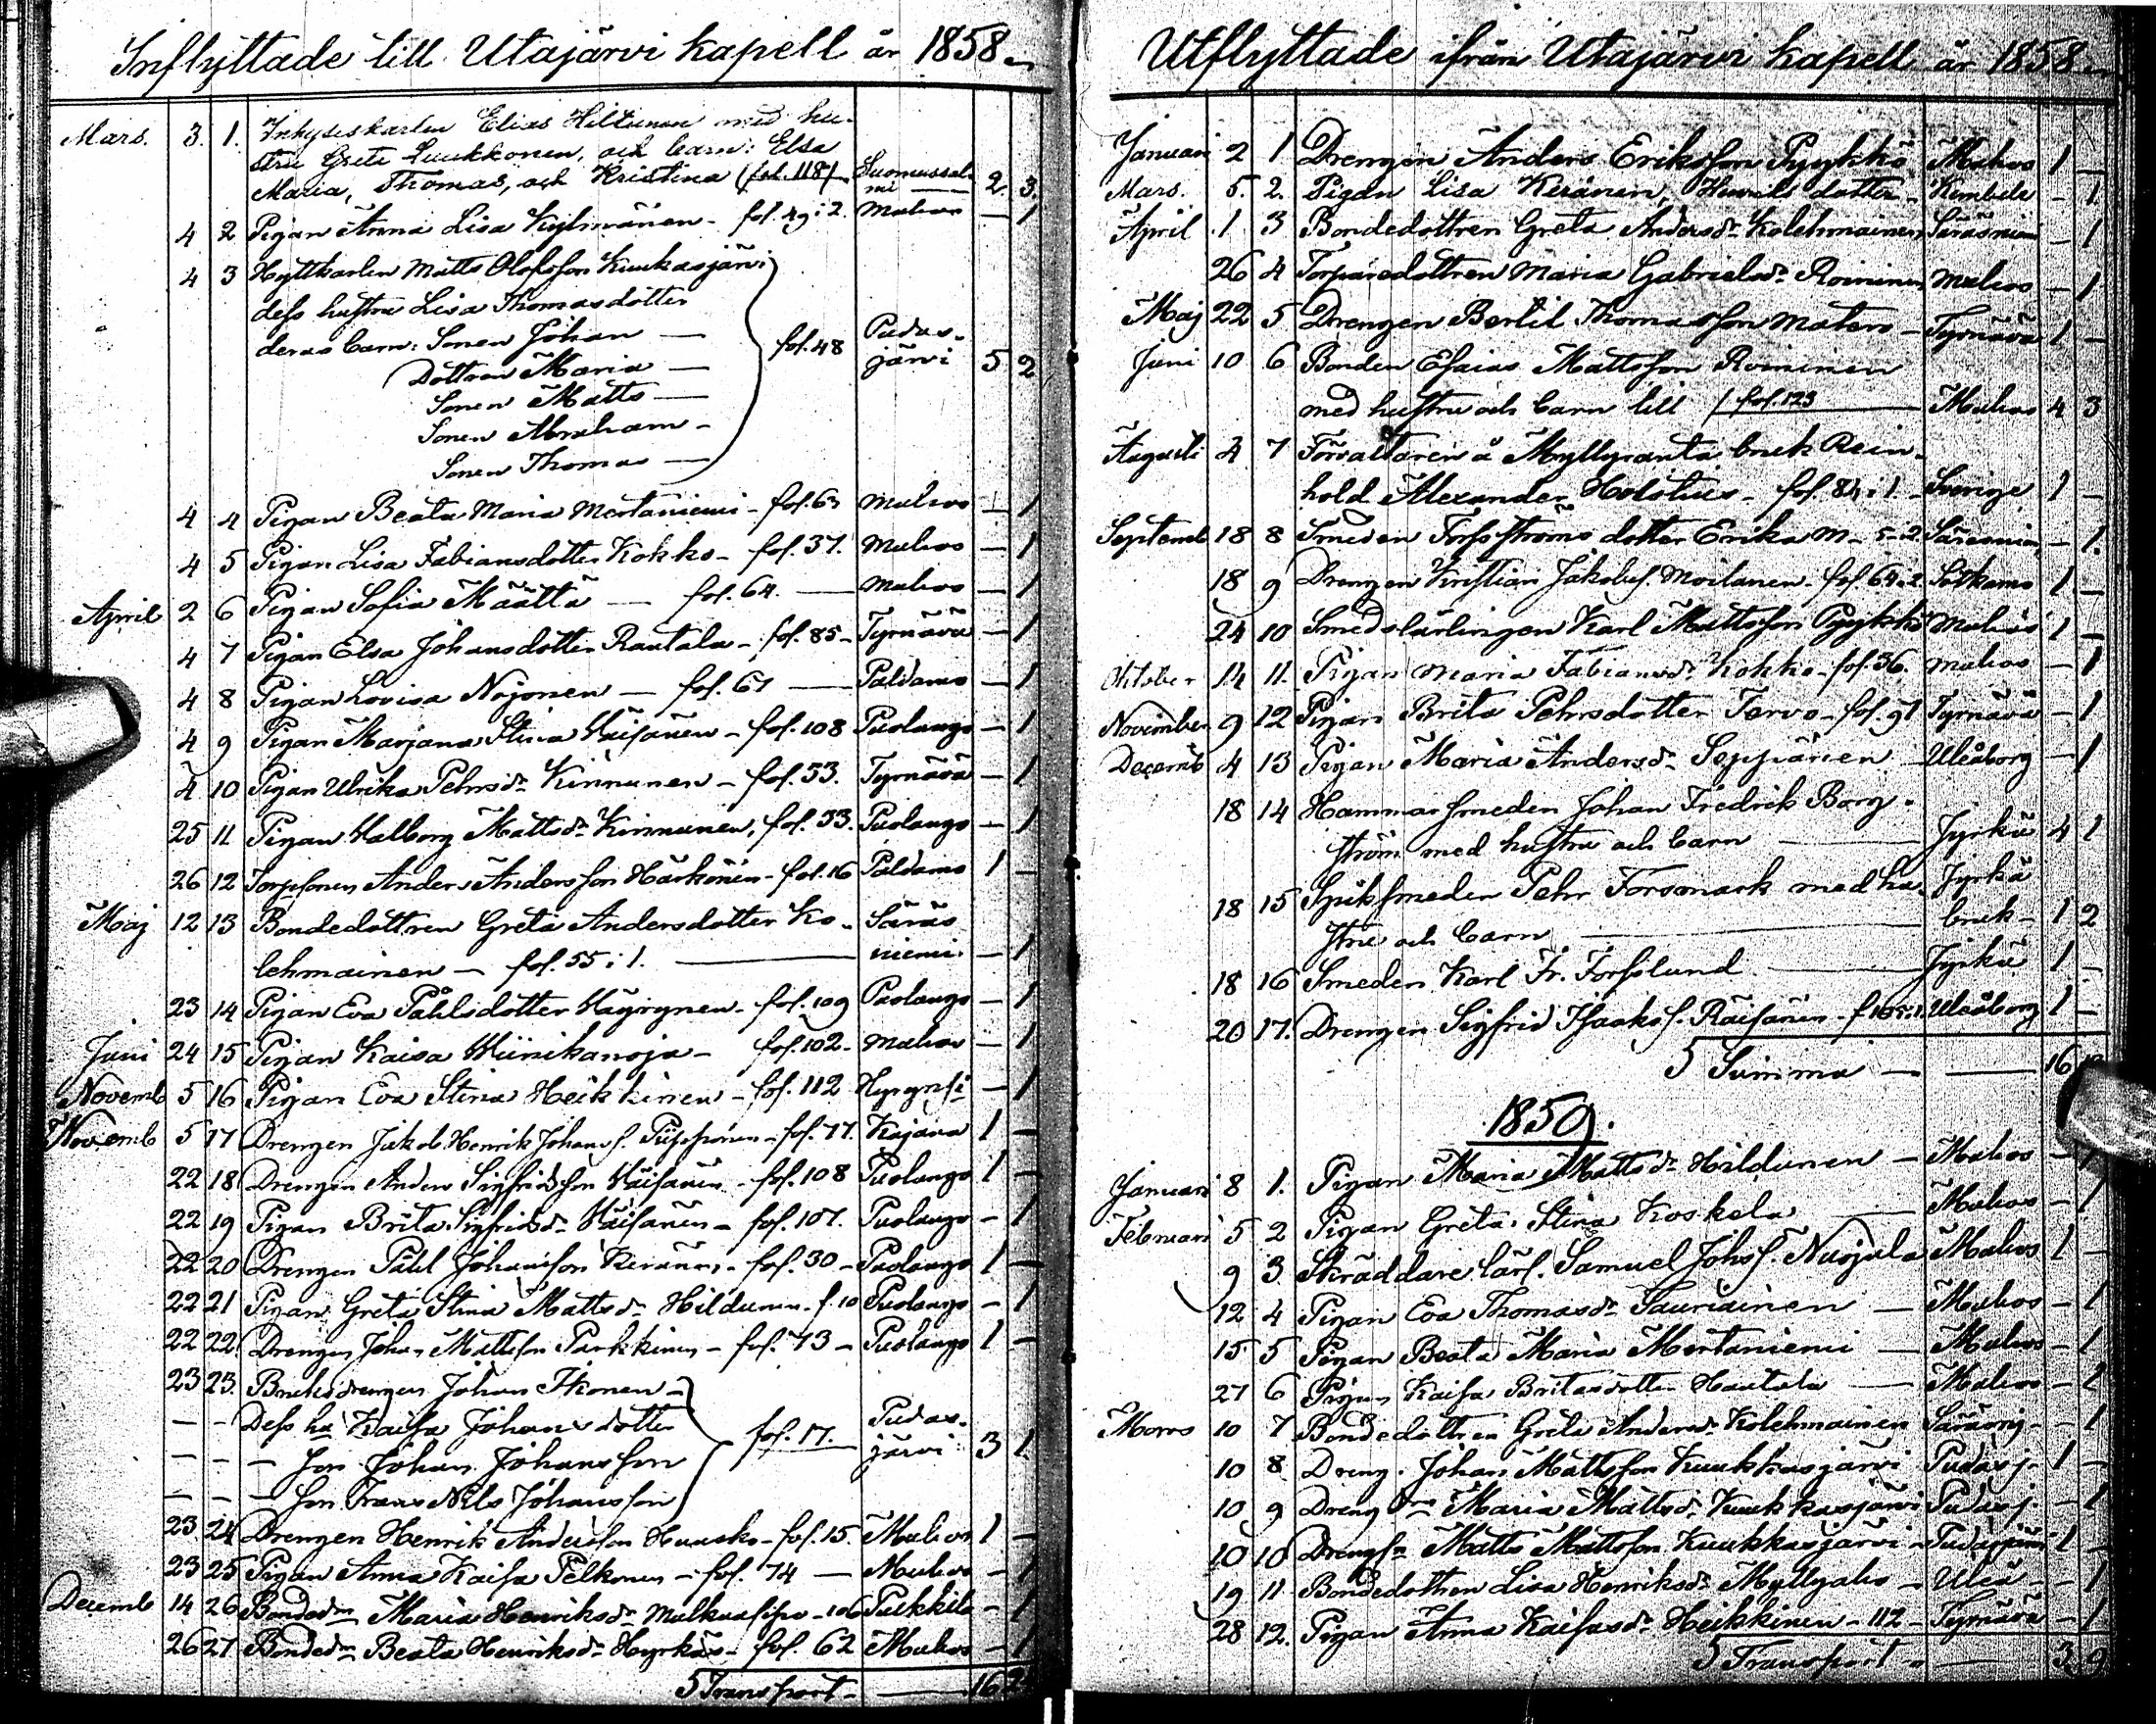 Inflyttade till Utajärvi kapell år 1858.
Mars. 3. 1. Inhyseskarlen Elias Hiltunen med hu-
stru Greta Luukkonen, och barn: Elsa
Maria, Thomas, och Kristina (fol. 118) Suomussal-
mi — 2. 3.
4 2 Pigan Anna Lisa Kylmänen - fol. 49 i 2. Muhos — 1
4 3 Hyttkarlen Matts Olofsson Kuukasjärvi
dess hustru Lisa Thomasdotter
deras barn: Sonen Johan — fol. 48 Pudas-
järvi 5 2
Dottren Maria —
Sonen Matts —
Sonen Abraham —
Sonen Thomas —
4 4 Pigan Beata Maria Mertaniemi - fol. 63 Muhos — 1
4 5 Pigan Lisa Fabiansdotter Kokko - fol. 37. Muhos — 1
April 2 6 Pigan Sofia Määttä — fol. 64. — Muhos — 1
4 7 Pigan Elsa Johansdotter Rautala - fol. 85 - Tyrnävä — 1
4 8 Pigan Lovisa Nojonen — fol. 61 — Paldamo — 1
4 9 Pigan Marjana Stina Väisänen - fol. 108 Puolango — 1
4 10 Pigan Ulrika Pehrsdr Kinnunen - fol. 53. Tyrnävä — 1
25 11 Pigan Walborg Mattsdr Kinnunen, fol. 53. Puolango — 1
26 12 Torpsonen Anders Andersson Härkönen - fol. 16 Paldamo 1 —
Maj 12 13 Bondedottren Greta Andersdotter Ko- Säräs
lehmainen — fol. 55 i 1. — niemi. — 1
23 14 Pigan Eva Påhlsdotter Häyrynen - fol. 109 Puolango — 1
Juni 24 15 Pigan Kaisa Wiinikanoja - fol. 102 - Muhos — 1
Novemb 5 16 Pigan Eva Stina Heikkinen - fol. 112 Hyrynsi — 1
Novemb 5 17 Drengen Jakob Henrik Johans s. Piipponen - fol. 77. Kajana 1 —
22 18 Drengen Anders Sigfridsson Väisänen - fol. 108 Puolango 1 —
22 19 Pigan Brita Sigfridsdr Väisänen - fol. 107. Puolango - 1
22 20 Drengen Påhl Johansson Keränen - fol. 30 - Puolango 1 —
22 21 Pigan Greta Stina Mattsdr Hildunen - f. 10 Puolango - 1
22 22 Drengen Johan Mattsson Parkkinen - fol. 73 - Puolango 1 —
23 23. Bruksdrengen Johan Ikonen -
— — Dess hu Kaisa Johansdotter fol. 17. Pudas-
järvi 3 1.
— — — Son Johan Johansson
— — — Son Frans Nils Johansson
23 24 Drengen Henrik Andersson Huusko - fol. 15. Muhos 1 —
23 25 Pigan Anna Kaisa Pelkonen - fol. 74 — Muhos - 1
Decemb 14 26 Bondedr Maria Henriksdr - 106 Pukkila - 1
26 27 Bondedr Beata Henriksdr Hyrkäs - fol. 62 Muhos - 1
S Transport — 16
Utflyttade ifrån Utajärvi kapell år 1858.
Januari 2 1 Drengen Anders Eriksson Pyykkö Muhos 1
Mars. 5. 2. Pigan Lisa Keränen, Henriks dotter - Kembele - 1
April 1 3 Bondedottren Greta Andersdr Kolehmainen Säräsniemi - 1
26 4 Torparedottren Maria Gabrielsdr Roininen Muhos - 1
Maj 22 5 Drengen Bertil Thomasson Matero - Tyrnävä 1 -
Juni 10 6 Bonden Esaias Mattsson Roininen
med hustru och barn till / fol. 123 — Muhos 4 3
Augusti 4 7 Förvaltaren å Myllyranta bruk Rein-
hold Alexander Holstius - fol. 84 i 1. - Sverige 1 -
Septemb 18 8 Smeden Forsströms dotter Erika M - 5 - 2 Säresniemi - 1.
18 9 Drengen Kristian Jakobs s. Moilanen - fol. 64 i 2 Sotkamo 1 -
24 10 Smedslärlingen Karl Mattsson Pyykkö Muhos 1 -
Oktober 14 11. Pigan Maria Fabiansdr Kokko - fol. 36. Muhos - 1
November 9 12 Pigan Brita Pehrsdotter Tervo - fol. 91 Tyrnävä - 1
Decemb 4 13 Pigan Maria Andersdr Seppänen - Uleåborg - 1
18 14 Hammarsmeden Johan Fredrik Borg-
ström med hustru och barn — Jyrkä 4 1
18 15 Spiksmeden Pehr Forsmark med hu- Jyrkä
stru och barn — bruk - 1 2
18 16 Smeden Karl Fr. Forslund — Jyrkä 1 -
20 17. Drengen Sigfrid Isaks s. Räisänen - f 105 i 1. Uleåborg 1 -
S Summa — 16
1859.
Januari 8 1. Pigan Maria Mattsdr Hildunen - Muhos - 1
Februari 5 2 Pigan Greta Stina Koskela — Muhos - 1
9 3. Skräddare lärl. Samuel Johs s. Nurjula Muhos 1 -
12 4 Pigan Eva Thomasdr Tauriainen — Muhos - 1
15 5 Pigan Beata Maria Mertaniemi — Muhos - 1
27 6 Pigan Kaisa Britasdotter Hautala — Muhos - 1
Mars 10 7 Bondedottren Greta Andersdr Kolehmainen Säräsnj. - 1
10 8. Dreng. Johan Mattsson Kuukkasjärvi Pudasj. 1 -
10 9 Dreng dr Maria Mattsdr Kuukkasjärvi Pudasj. - 1
10 10 Drengsn Matts Mattsson Kuukkasjärvi - Pudasjärvi 1 -
19 11 Bondedottren Lisa Henriksdr Myllyaho - Uleå - 1
28 12. Pigan Anna Kaisasdr Heikkinen - 112 - Tyrnävä - 1
S Transport - — 3 9